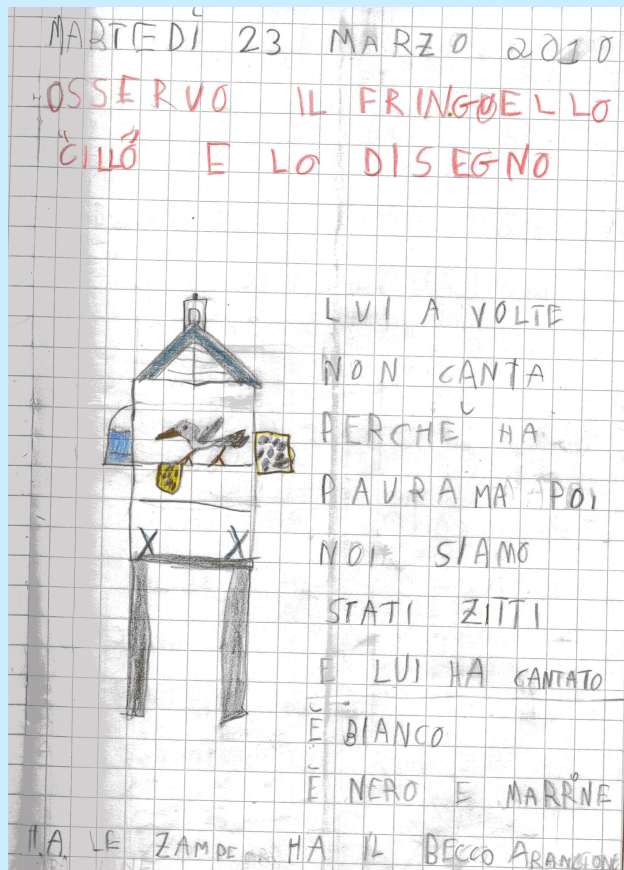 MARTEDÌ 23 MARZO 2010
OSSERVO IL FRINGUELLO
"CILLÓ" E LO DISEGNO
LUI A VOLTE
NON CANTA
PERCHÈ HA
PAURA MA POI
NOI SIAMO
STATI ZITTI
E LUI HA CANTATO
È BIANCO
È NERO E MARRNE
HA LE ZAMPE HA IL BECCO ARANCIONE